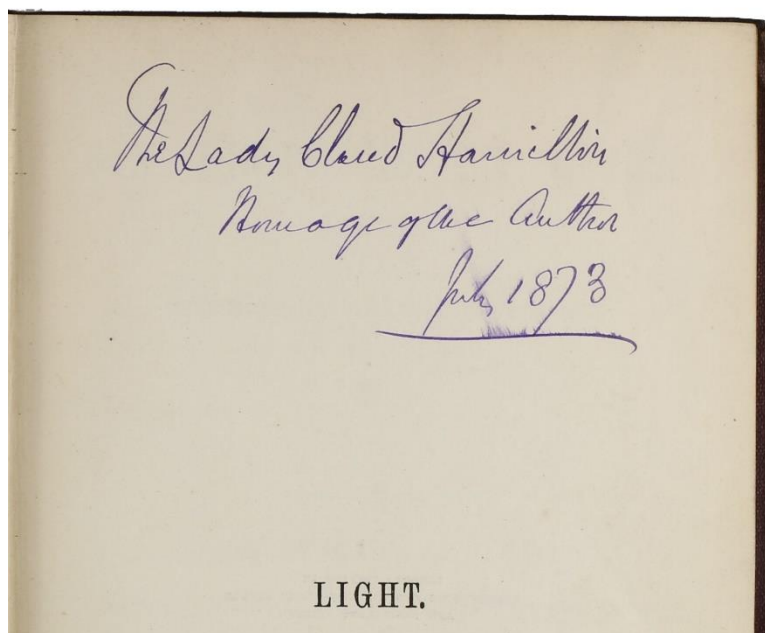 The Lady Claud Hamilton
Homage of the Author
July 1873
LIGHT.